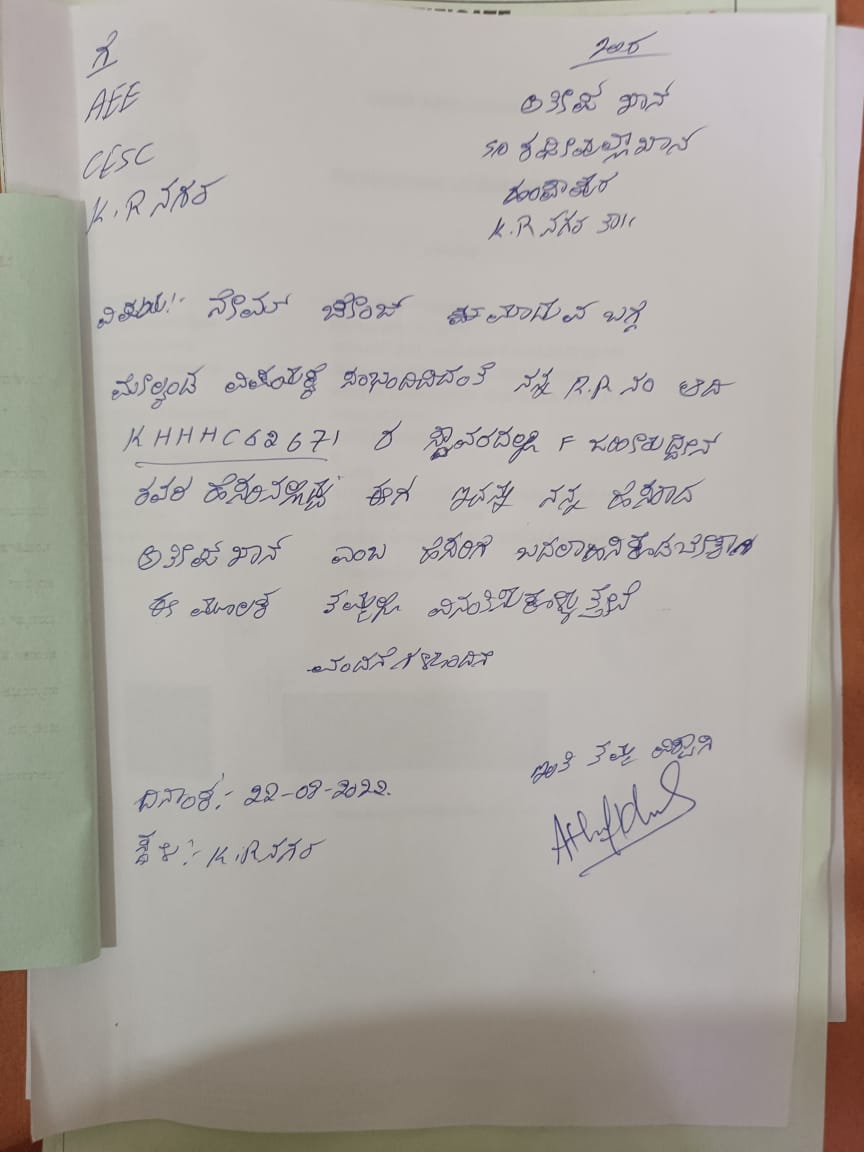 ಗೆ
AEE
CESC
K.R ನಗರ
ಇಂದ
ಅತೀಫ್ ಖಾನ್
S/O ಖಾನ್
K.R ನಗರ ತಾ||
ವಿಷಯ:- ನೇಮ್ ಚೇಂಜ್ ಮಾಡುವ ಬಗ್ಗೆ
ಮೇಲ್ಕಂಡ ವಿಷಯಕ್ಕೆ ಸಂಬಂದಿಸಿದಂತೆ ನನ್ನ R.R ನಂ ಆದ
KHHHC62671 ರ ಸ್ಥಾವರದಲ್ಲಿ F ಜಹೀರುದ್ದೀನ್
ರವರ ಹೆಸರಿನಲ್ಲಿದ್ದು ಈಗ ಇದನ್ನು ನನ್ನ ಹೆಸರಾದ
ಅತೀಫ್ ಖಾನ್ ಎಂಬ ಹೆಸರಿಗೆ ಬದಲಾಹಿಸಿಕೊಡಬೇಕಾಗಿ
ಈ ಮೂಲಕ ತಮ್ಮಲ್ಲಿ ವಿನಂತಿಸಿಕೊಳ್ಳುತ್ತೇನೆ
ವಂದನೆಗಳೊಂದಿಗೆ
ಇಂತಿ ತಮ್ಮ ವಿಶ್ವಾಸಿ
ದಿನಾಂಕ:- 22-08-2022.
ಸ್ಥಳ:- K.R ನಗರ